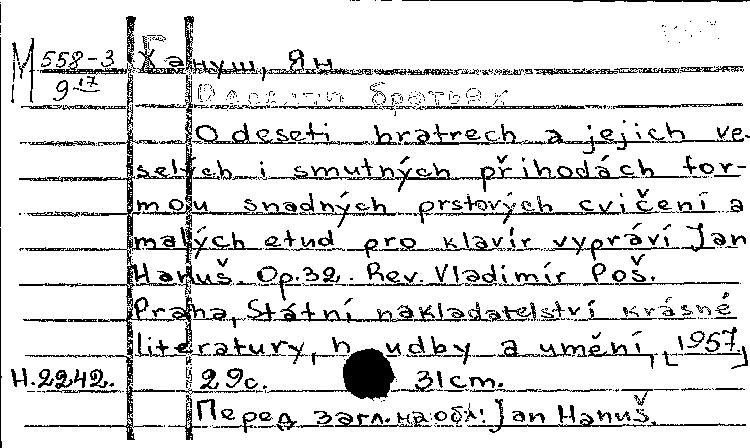 М 558-3 Хануш, Ян
9 17
О десяти братьях
O deseti bratrech a jejich ve-
selých i smutných příhodách for-
mou snadných prstových cvičení a
malých etud pro klavír vypráví Jan
Hanuš. Op.32. Rev. Vladimír Poš.
Praha, Státní nakladatelství krásné
literatury, h udby a umění, [1957]
Н.2242. 29с. 31cm.
Перед загл. на обл.: Jan Hanuš.